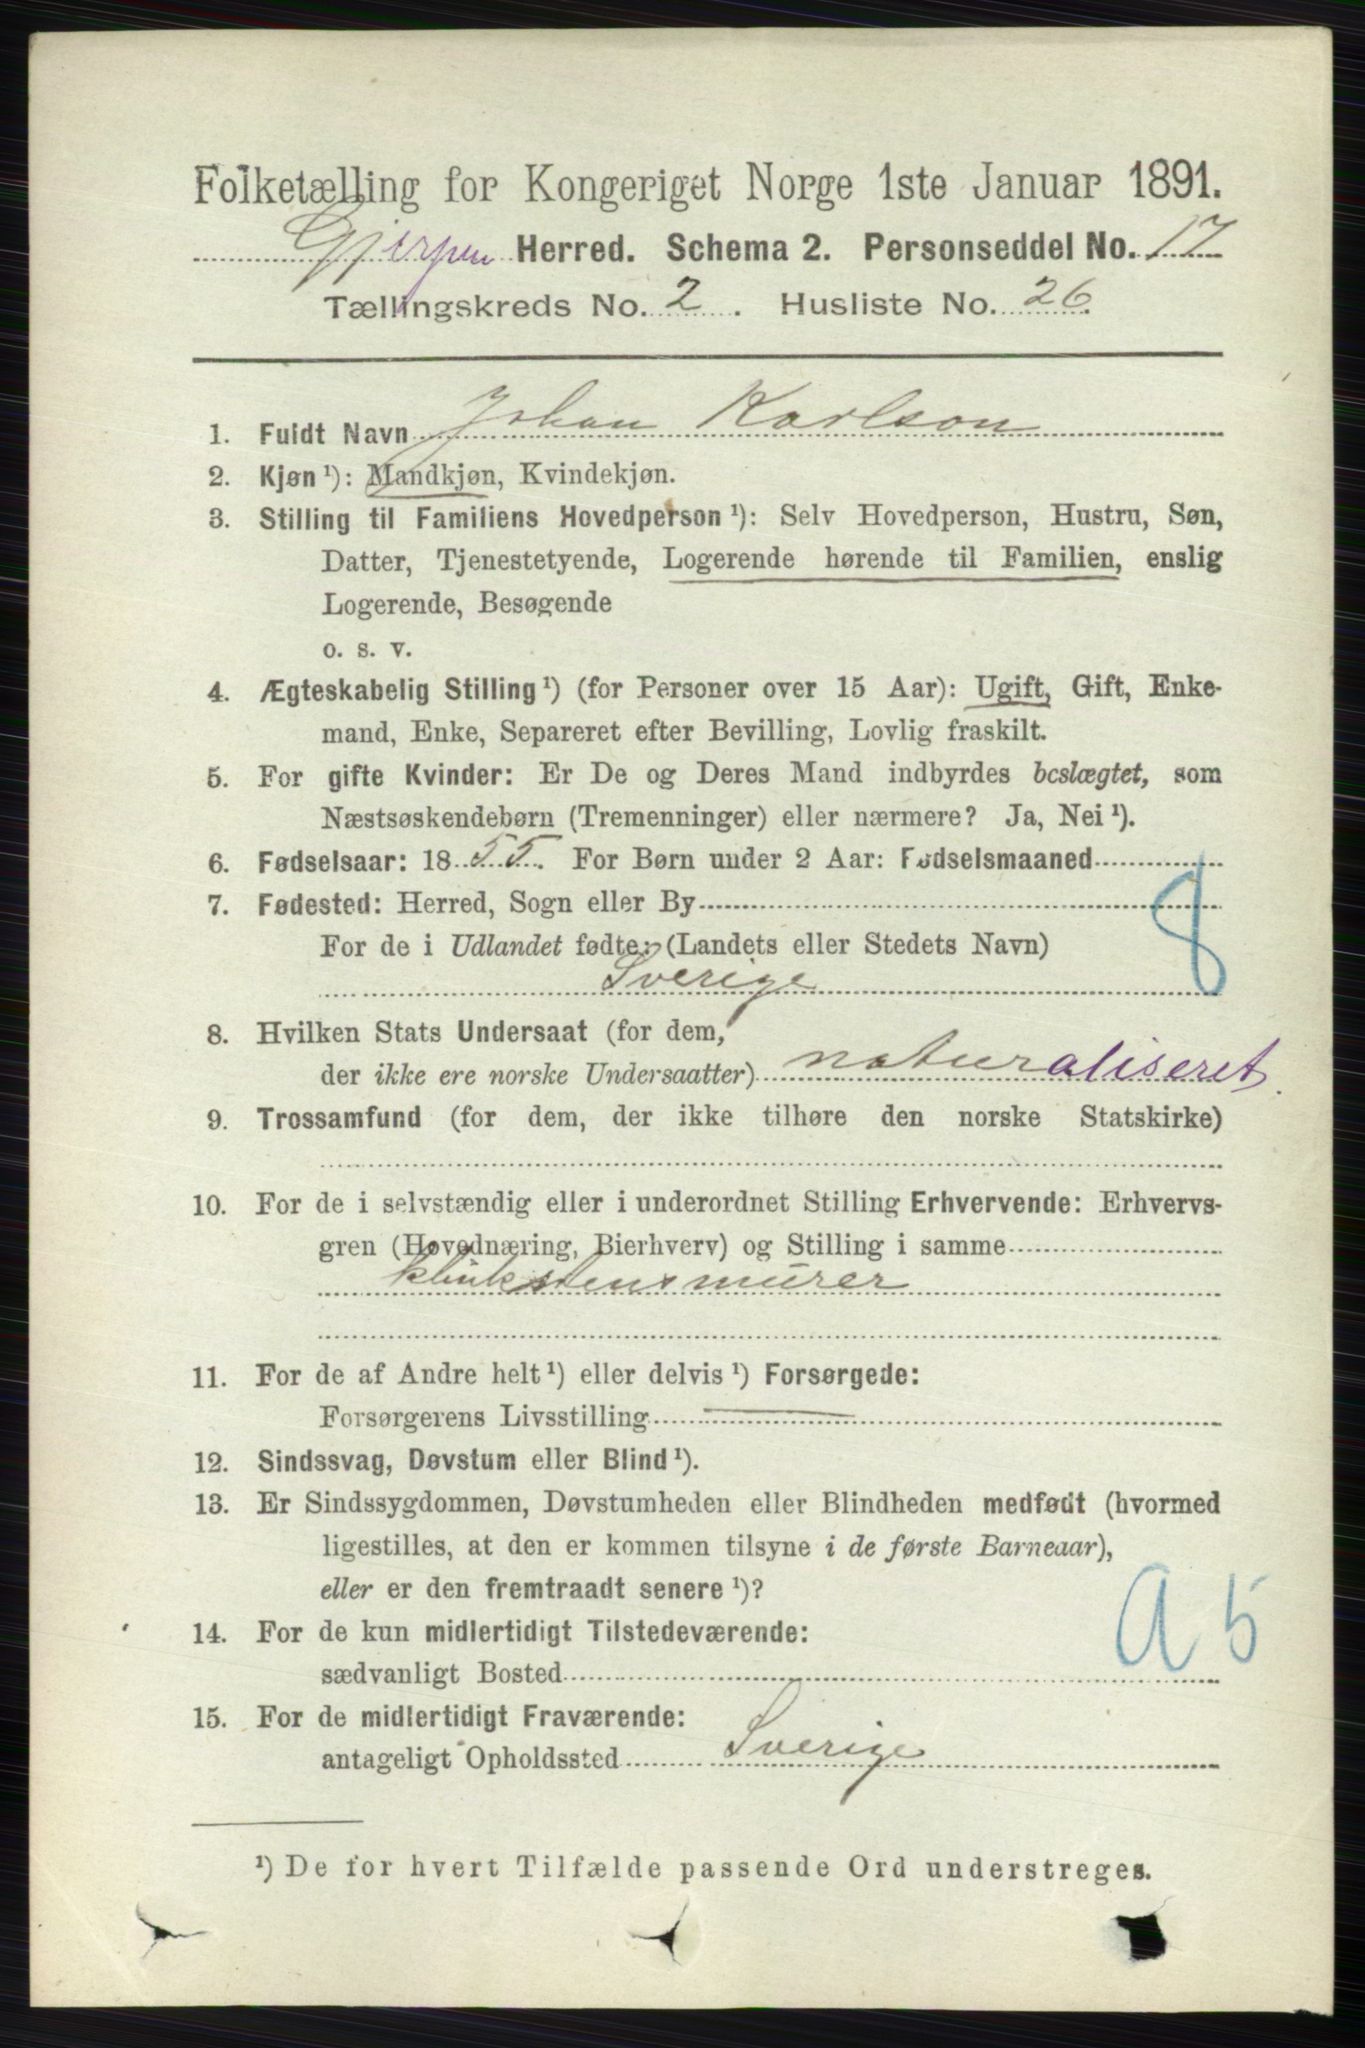 Folketælling for Kongeriget Norge 1ste Januar 1891.
Gjerpen Herred. Schema 2. Personseddel No. 17
Tællingskreds No. 2. Husliste No. 26.
1. Fuldt Navn Johan Karlson
2. Kjøn ¹): Mandkjøn, Kvindekjøn.
3. Stilling til Familiens Hovedperson ¹): Selv Hovedperson, Hustru, Søn,
Datter, Tjenestetyende, Logerende hørende til Familien, enslig
Logerende, Besøgende
o. s. v.
4. Ægteskabelig Stilling ¹) (for Personer over 15 Aar): Ugift, Gift, Enke-
mand, Enke, Separeret efter Bevilling, Lovlig fraskilt.
5. For gifte Kvinder: Er De og Deres Mand indbyrdes beslægtet, som
Næstsøskendebørn (Tremenninger) eller nærmere? Ja, Nei ¹).
6. Fødselsaar: 1855. For Børn under 2 Aar: Fødselsmaaned
7. Fødested: Herred, Sogn eller By
8
For de i Udlandet fødte: (Landets eller Stedets Navn)
Sverige
8. Hvilken Stats Undersaat (for dem,
der ikke ere norske Undersaatter) naturaliseret.
9. Trossamfund (for dem, der ikke tilhøre den norske Statskirke)
10. For de i selvstændig eller i underordnet Stilling Erhvervende: Erhvervs-
gren (Hovednæring, Bierhverv) og Stilling i samme
klinkstensmurer
11. For de af Andre helt ¹) eller delvis ¹) Forsørgede:
Forsørgerens Livsstilling
12. Sindssvag, Døvstum eller Blind ¹).
13. Er Sindssygdommen, Døvstumheden eller Blindheden medfødt (hvormed
ligestilles, at den er kommen tilsyne i de første Barneaar),
eller er den fremtraadt senere ¹)?
a 5
14. For de kun midlertidigt Tilstedeværende:
sædvanligt Bosted
15. For de midlertidigt Fraværende:
antageligt Opholdssted Sverige
¹) De for hvert Tilfælde passende Ord understreges.